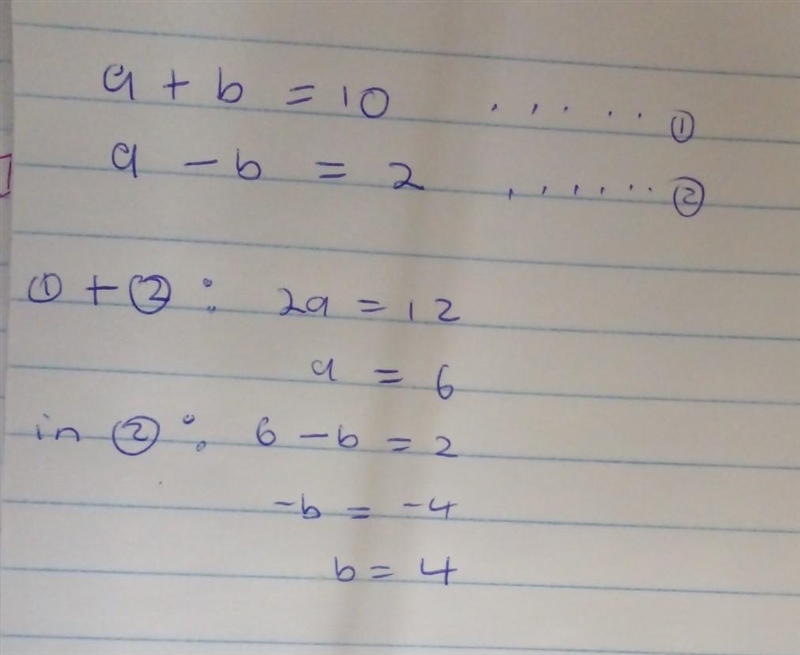 a + b = 10 ..... ①
a - b = 2 ...... ②
① + ② : 2a = 12
a = 6
in ② : 6 - b = 2
-b = -4
b = 4